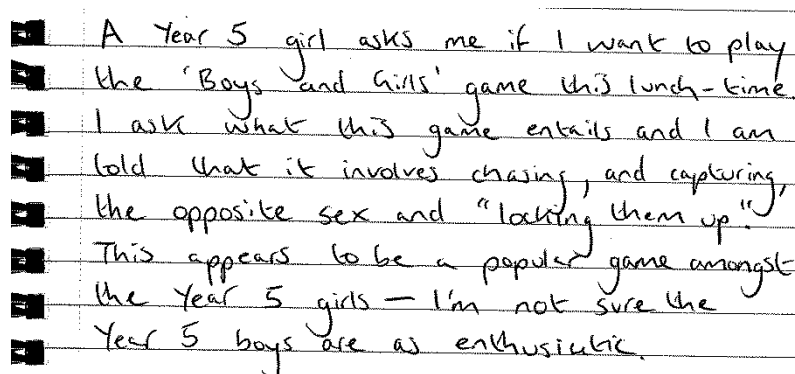 A Year 5 girl asks me if I want to play
the 'Boys and Girls' game this lunch-time.
I ask what this game entails and I am
told that it involves chasing, and capturing,
the opposite sex and "locking them up".
This appears to be a popular game amongst
the Year 5 girls — I'm not sure the
Year 5 boys are as enthusiatic.